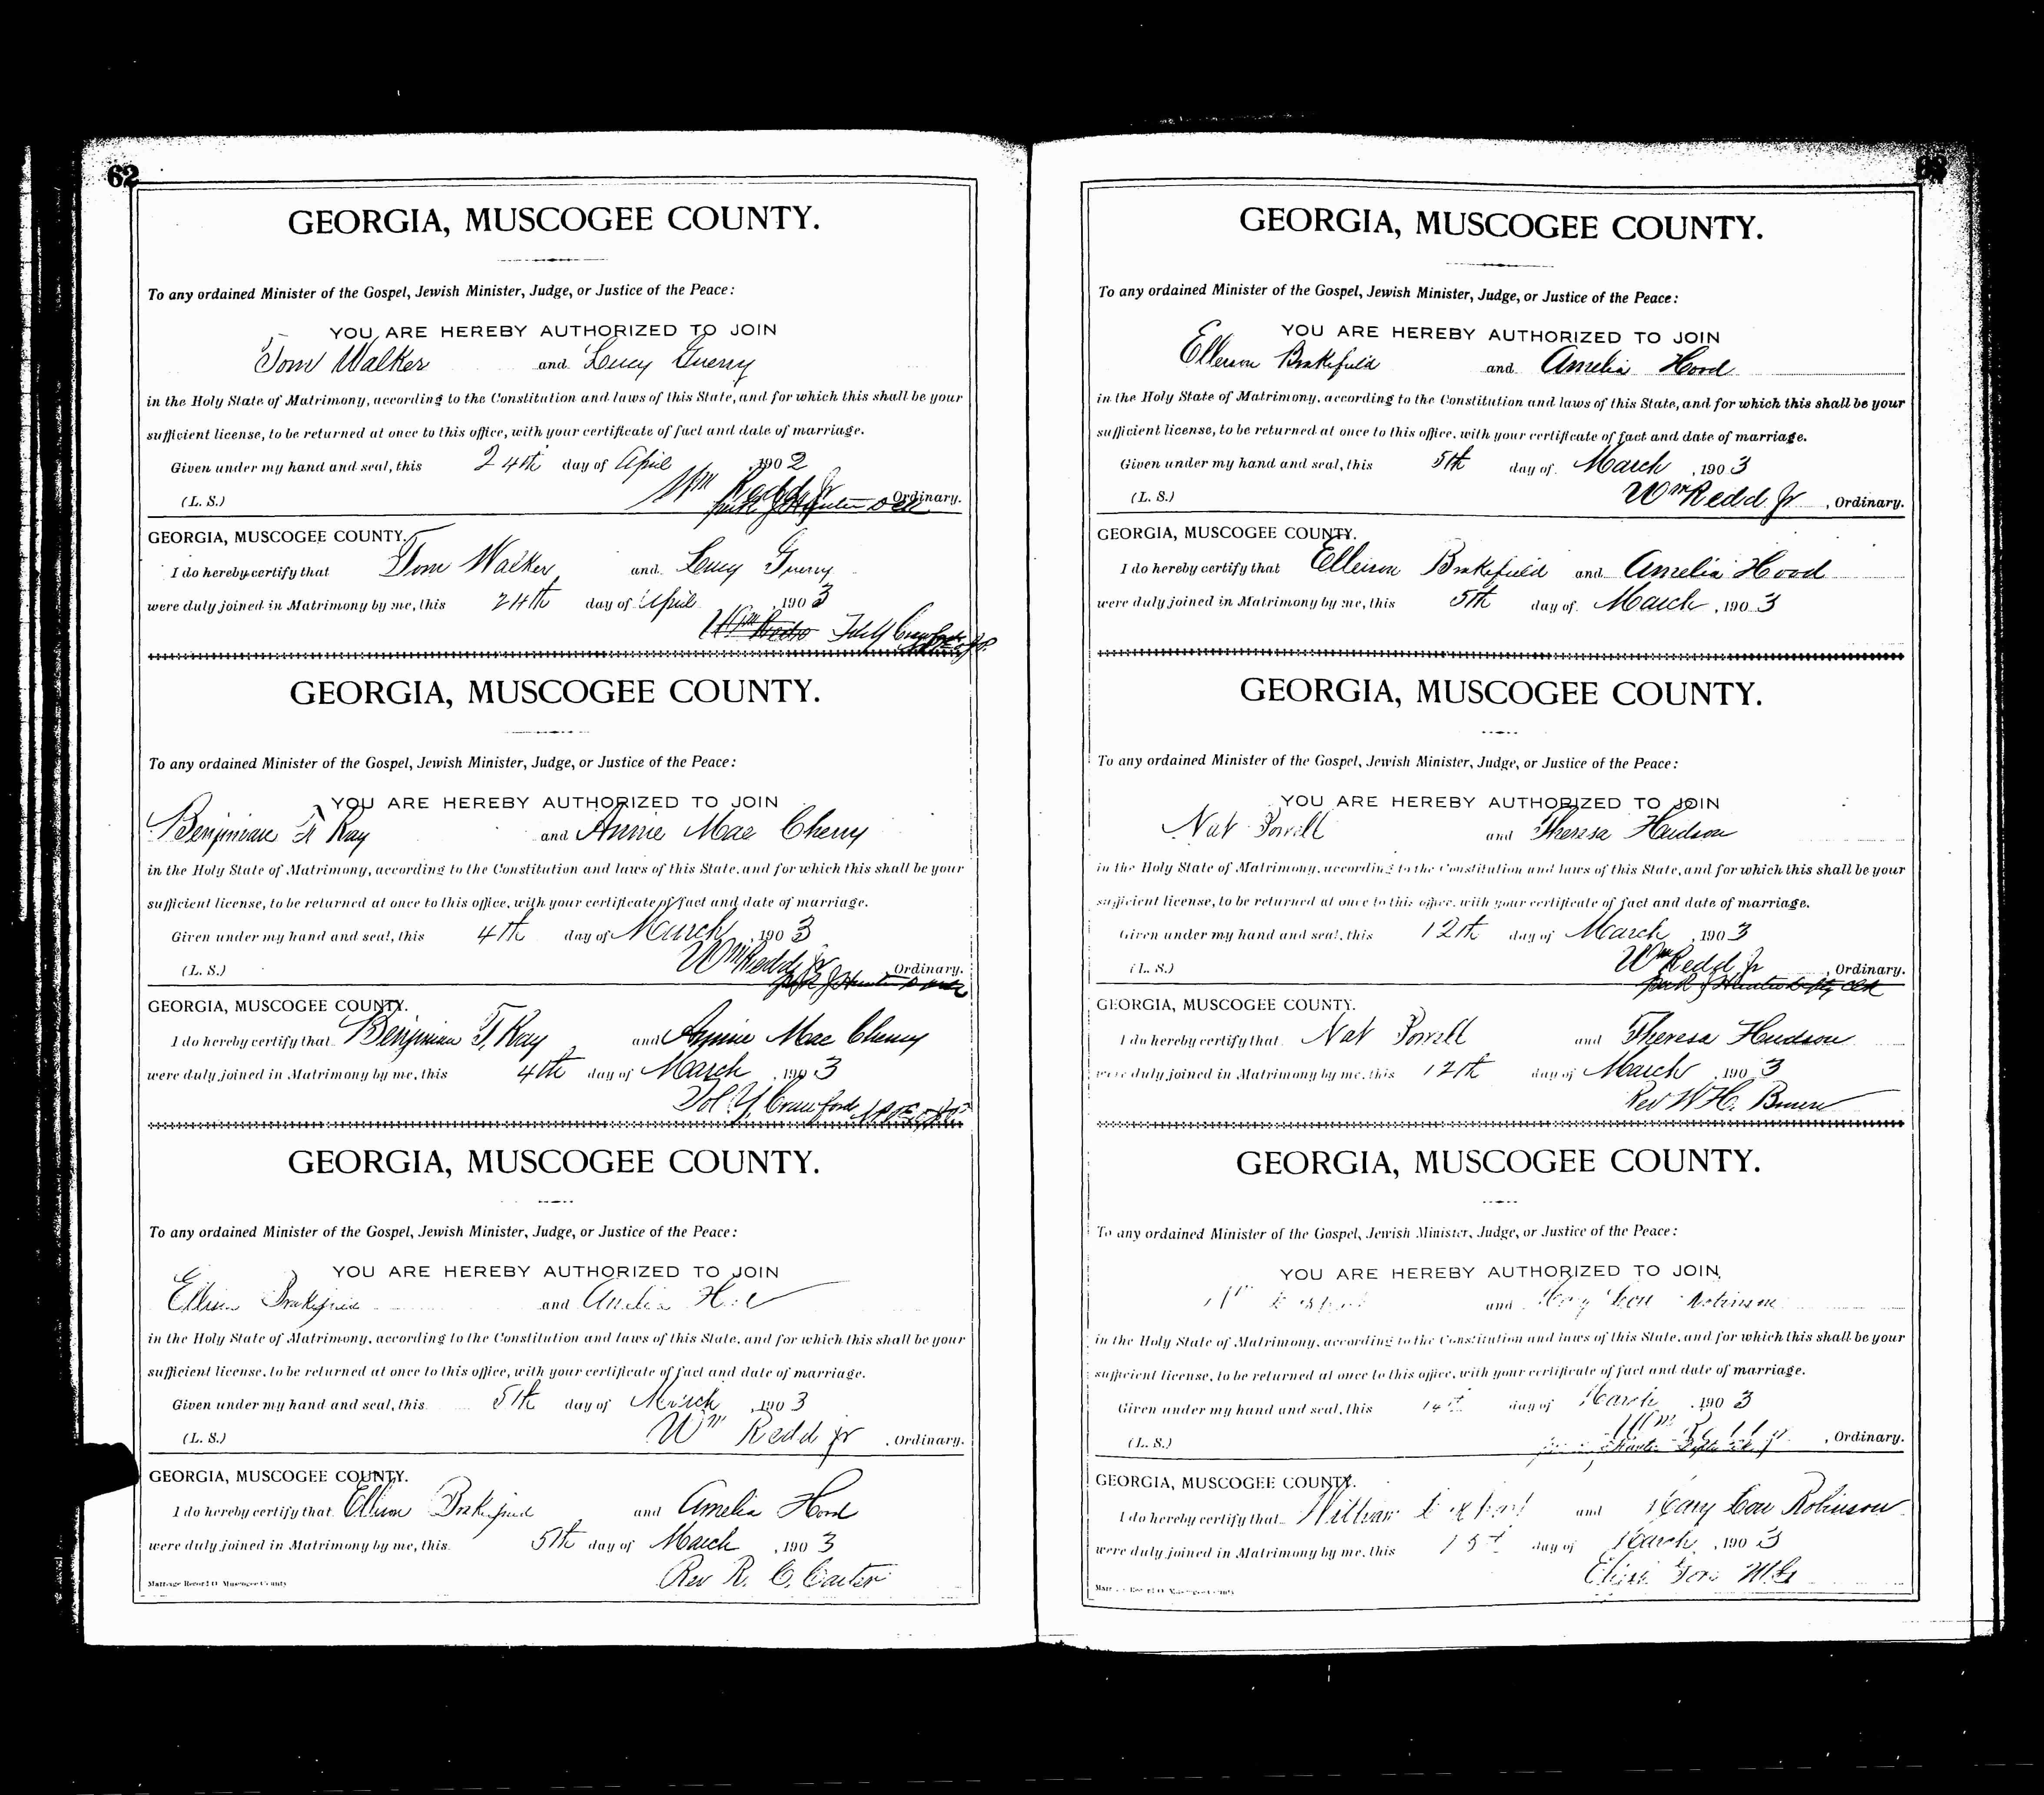 62
GEORGIA, MUSCOGEE COUNTY.
To any ordained Minister of the Gospel, Jewish Minister, Judge, or Justice of the Peace:
YOU ARE HEREBY AUTHORIZED TO JOIN
Tom Walker and Lucy Guerry
in the Holy State of Matrimony, according to the Constitution and laws of this State, and for which this shall be your
sufficient license, to be returned at once to this office, with your certificate of fact and date of marriage.
Given under my hand and seal, this 24th day of April, 1902
Wm Redd Jr
(L. S.) Ordinary.
GEORGIA, MUSCOGEE COUNTY.
I do hereby certify that Tom Walker and Lucy Guerry
were duly joined in Matrimony by me, this 24th day of April, 1903
Crawford
GEORGIA, MUSCOGEE COUNTY.
To any ordained Minister of the Gospel, Jewish Minister, Judge, or Justice of the Peace:
YOU ARE HEREBY AUTHORIZED TO JOIN
Benjiman F Ray and Annie Mae Cherry
in the Holy State of Matrimony, according to the Constitution and laws of this State, and for which this shall be your
sufficient license, to be returned at once to this office, with your certificate of fact and date of marriage.
Given under my hand and seal, this 4th day of March, 1903
Wm Redd Jr
(L. S.) Ordinary.
GEORGIA, MUSCOGEE COUNTY.
I do hereby certify that Benjiman F. Ray and Annie Mae Cherry
were duly joined in Matrimony by me, this 4th day of March, 1903
Tol. Y. Crawford
GEORGIA, MUSCOGEE COUNTY.
To any ordained Minister of the Gospel, Jewish Minister, Judge, or Justice of the Peace:
YOU ARE HEREBY AUTHORIZED TO JOIN
Ellison Brakefield and Amelia
in the Holy State of Matrimony, according to the Constitution and laws of this State, and for which this shall be your
sufficient license, to be returned at once to this office, with your certificate of fact and date of marriage.
Given under my hand and seal, this 5th day of March, 1903
(L. S.) Wm Redd Jr, Ordinary.
GEORGIA, MUSCOGEE COUNTY.
I do hereby certify that Ellison Brakefield and Amelia Hood
were duly joined in Matrimony by me, this 5th day of March, 1903
Rev R. C. Carter
Marriage Record O Muscogee County
GEORGIA, MUSCOGEE COUNTY.
To any ordained Minister of the Gospel, Jewish Minister, Judge, or Justice of the Peace:
YOU ARE HEREBY AUTHORIZED TO JOIN
Ellerson Brakefield and Amelia Hood
in the Holy State of Matrimony, according to the Constitution and laws of this State, and for which this shall be your
sufficient license, to be returned at once to this office, with your certificate of fact and date of marriage.
Given under my hand and seal, this 5th day of March, 1903
(L. S.) Wm Redd Jr, Ordinary.
GEORGIA, MUSCOGEE COUNTY.
I do hereby certify that Ellerson Brakefield and Amelia Hood
were duly joined in Matrimony by me, this 5th day of March, 1903
GEORGIA, MUSCOGEE COUNTY.
To any ordained Minister of the Gospel, Jewish Minister, Judge, or Justice of the Peace:
YOU ARE HEREBY AUTHORIZED TO JOIN
Nat Powell and Theresa Hudson
in the Holy State of Matrimony, according to the Constitution and laws of this State, and for which this shall be your
sufficient license, to be returned at once to this office, with your certificate of fact and date of marriage.
Given under my hand and seal, this 12th day of March, 1903
Wm Redd Jr
(L. S.), Ordinary.
GEORGIA, MUSCOGEE COUNTY.
I do hereby certify that Nat Powell and Theresa Hudson
were duly joined in Matrimony by me, this 12th day of March, 1903
Rev W H.
GEORGIA, MUSCOGEE COUNTY.
To any ordained Minister of the Gospel, Jewish Minister, Judge, or Justice of the Peace:
YOU ARE HEREBY AUTHORIZED TO JOIN
and Robinson
in the Holy State of Matrimony, according to the Constitution and laws of this State, and for which this shall be your
sufficient license, to be returned at once to this office, with your certificate of fact and date of marriage.
Given under my hand and seal, this 14th day of March, 1903
(L. S.), Ordinary.
GEORGIA, MUSCOGEE COUNTY.
I do hereby certify that William and Robinson
were duly joined in Matrimony by me, this day of March, 1903